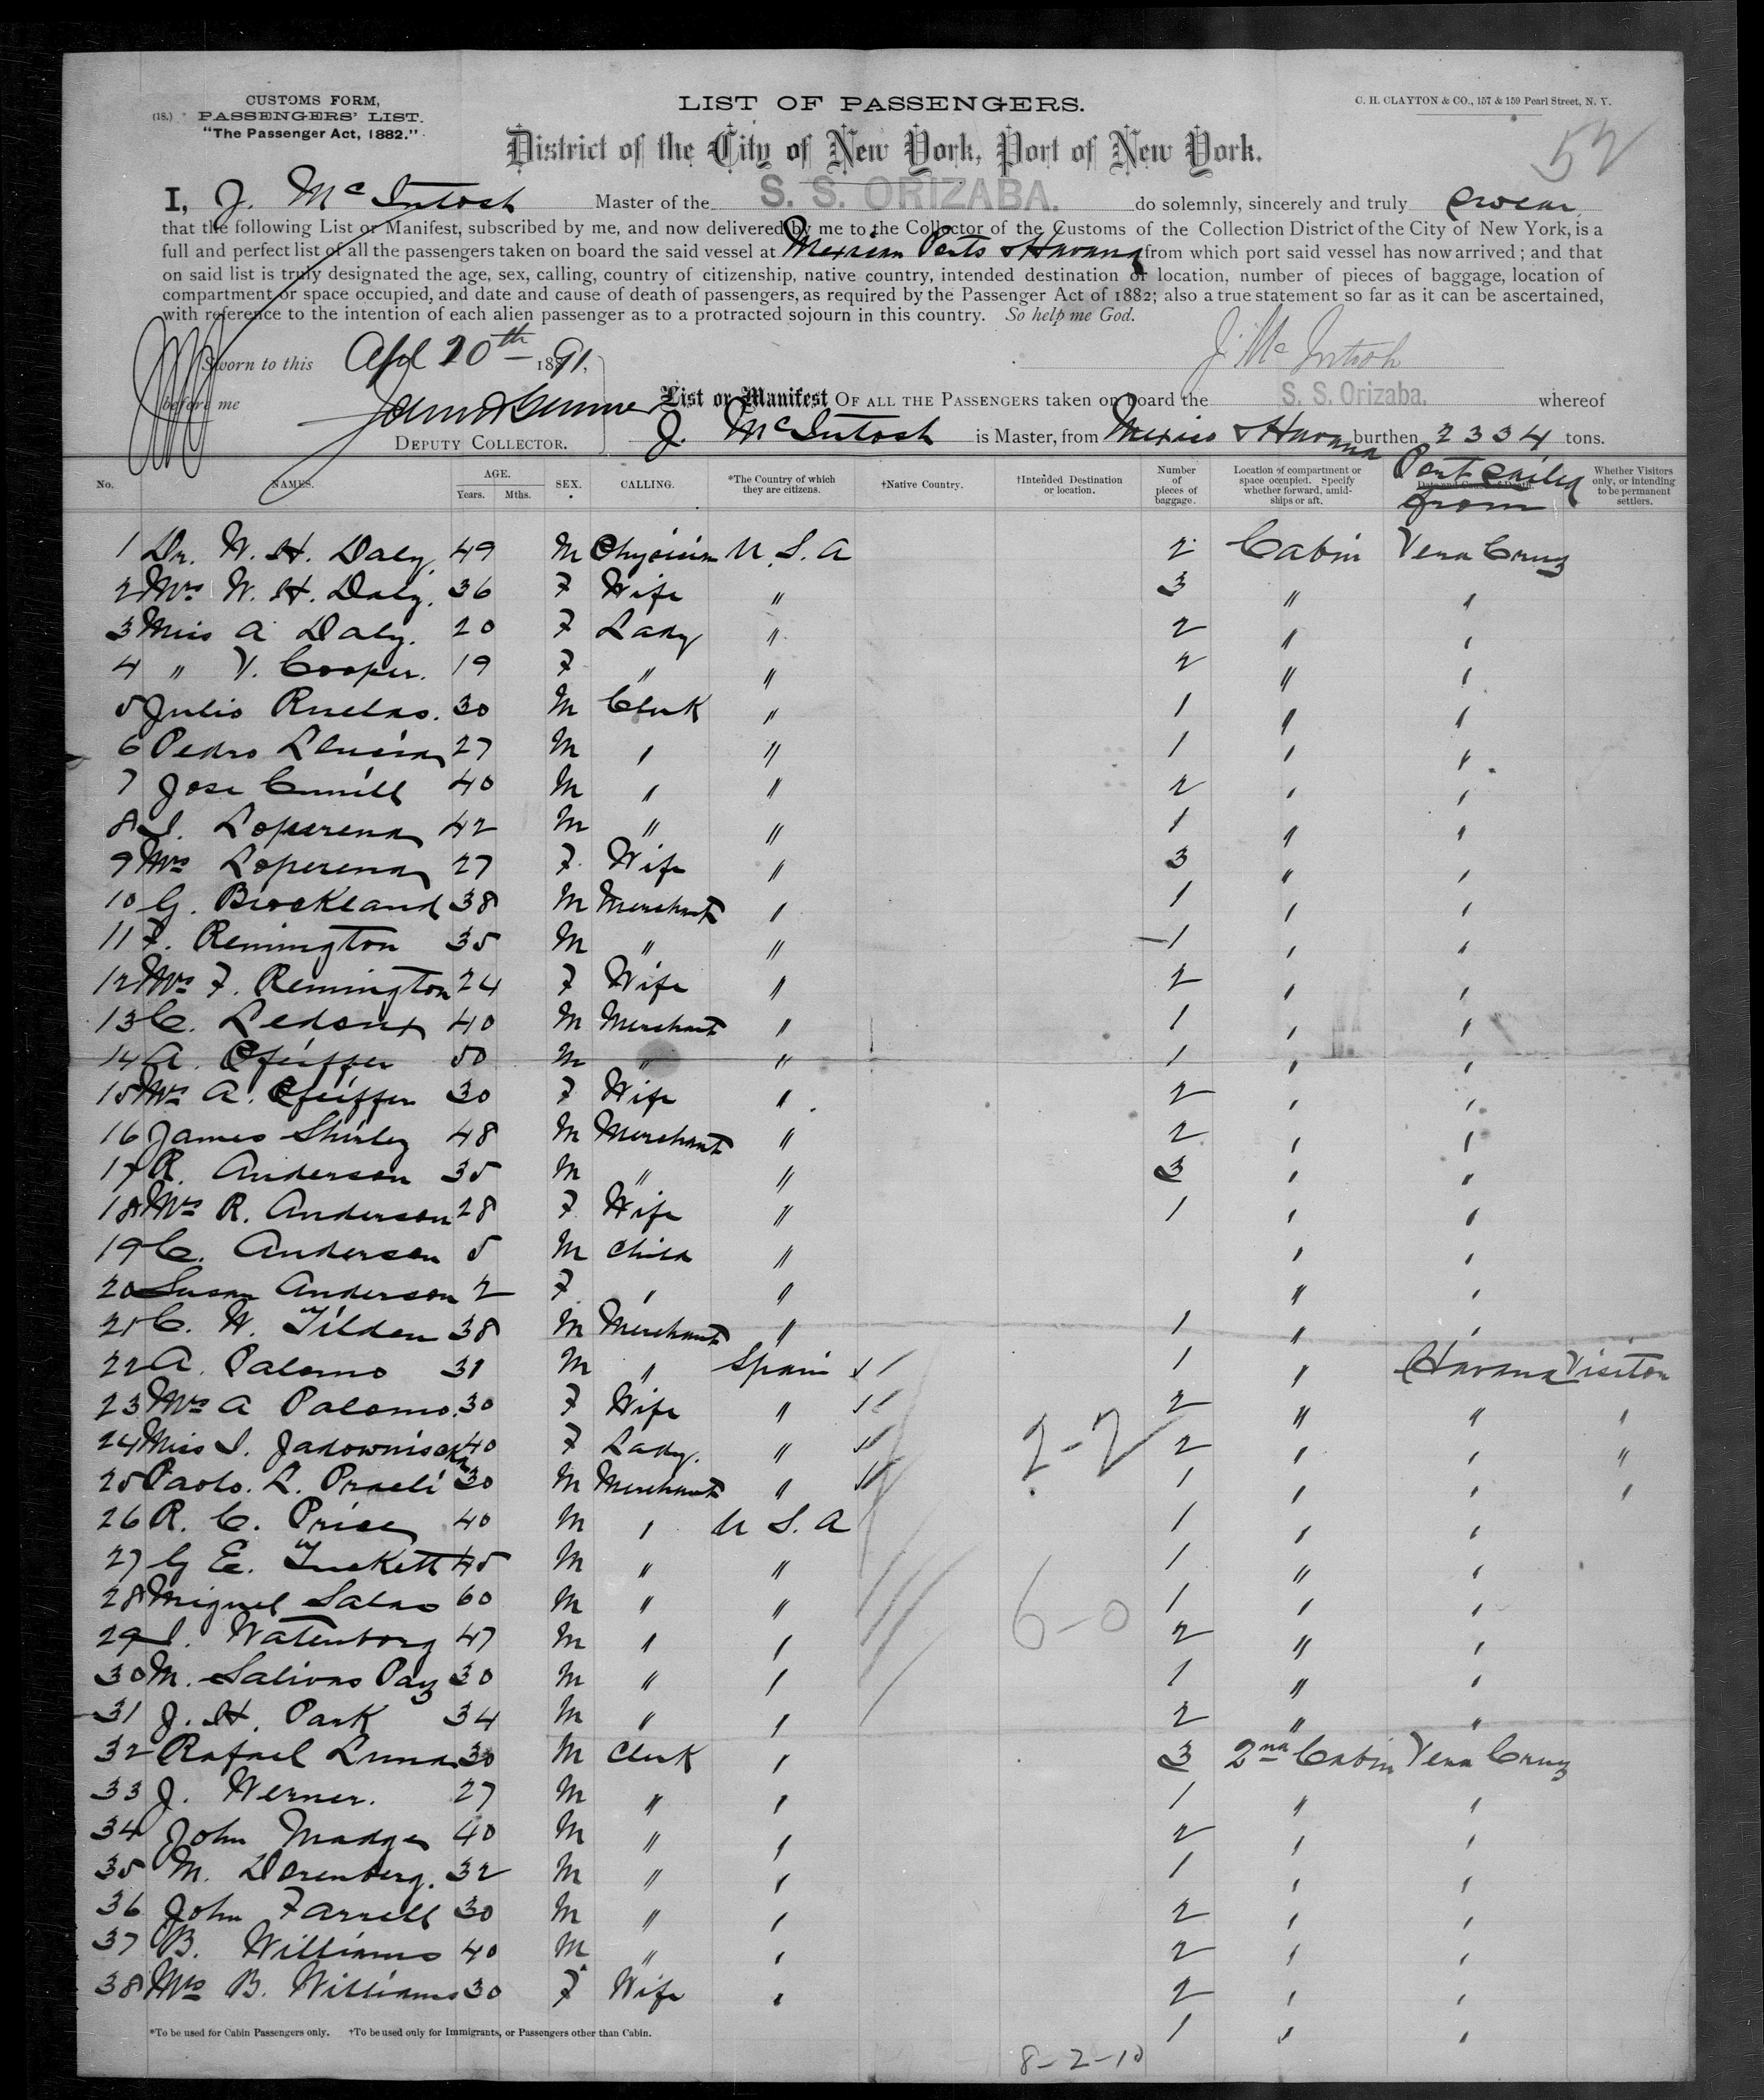 CUSTOMS FORM,
(18.) PASSENGERS' LIST.
"The Passenger Act, 1882."
LIST OF PASSENGERS.
C. H. CLAYTON & CO., 157 & 159 Pearl Street, N. Y.
52
District of the City of New York, Port of New York.
I, J. McIntosh Master of the S. S. ORIZABA. do solemnly, sincerely and truly swear
that the following List or Manifest, subscribed by me, and now delivered by me to the Collector of the Customs of the Collection District of the City of New York, is a
full and perfect list of all the passengers taken on board the said vessel at Mexican Ports & Havana from which port said vessel has now arrived; and that
on said list is truly designated the age, sex, calling, country of citizenship, native country, intended destination or location, number of pieces of baggage, location of
compartment or space occupied, and date and cause of death of passengers, as required by the Passenger Act of 1882; also a true statement so far as it can be ascertained,
with reference to the intention of each alien passenger as to a protracted sojourn in this country. So help me God.
J. McIntosh
Sworn to this 20th 1891,
before me
DEPUTY COLLECTOR.
List or Manifest OF ALL THE PASSENGERS taken on board the S. S. Orizaba. whereof
J. McIntosh is Master, from Mexico & Havana burthen 2334 tons.
No. NAMES. AGE. Years. Mths. SEX. CALLING. *The Country of which they are citizens. †Native Country. †Intended Destination or location. Number of pieces of baggage. Location of compartment or space occupied. Specify whether forward, amidships or aft. Date and Cause of Death. Port sailed from Whether Visitors only, or intending to be permanent settlers.
1 Dr. W. H. Daly. 49 M Physician U. S. A 2 Cabin Vera Cruz
2 Mrs W. H. Daly. 36 F Wife " 3 " "
3 Miss A Daly. 20 F Lady " 2 " "
4 " V. Cooper. 19 F " " 2 " "
5 Julio Ruelas. 30 M Clerk " 1 " "
6 Pedro 27 M " " 1 " "
7 Jose 40 M " " 2 " "
8 Loperena 42 M " " 1 " "
9 Mrs Loperena 27 F Wife " 3 " "
10 G. Brockland 38 M Merchant " 1 " "
11 F. Remington 35 M " " 1 " "
12 Mrs F. Remington 24 F Wife " 2 " "
13 C. 40 M Merchant " 1 " "
14 A. Pfeiffer 50 M " " 1 " "
15 Mrs A. Pfeiffer 30 F Wife " 2 " "
16 James Shirley 48 M Merchant " 2 " "
17 R. Anderson 35 M " " 3 " "
18 Mrs R. Anderson 28 F Wife " 1 " "
19 C. Anderson 5 M Child " " "
20 Susan Anderson 2 F " " " "
21 C. W. Tilden 38 M Merchant " 1 " "
22 A. Palomo 31 M " Spain 1 " Havana Visitor
23 Mrs A Palomo. 30 F Wife " 2 " " "
24 Miss 40 F Lady. " 2-2 2 " " "
25 Paolo. L. Praeli 30 M Merchant " 1 " " "
26 R. C. Price 40 M " U S. A 1 " "
27 G E. Tuckett 45 M " " 1 " "
28 Miguel Salas 60 M " " 6-0 1 " "
29 47 M " " 2 " "
30 M. Salinas Paz 30 M " " 1 " "
31 J. H. Park 34 M " " 2 " "
32 Rafael Luna 30 M Clerk " 3 2nd Cabin Vera Cruz
33 J. Werner. 27 M " " 1 " "
34 John Madge 40 M " " 2 " "
35 M. Dorenberg. 32 M " " 1 " "
36 John Farrell 30 M " " 2 " "
37 B. Williams 40 M " " 2 " "
38 Mrs B. Williams 30 F Wife " 2 " "
1 " "
*To be used for Cabin Passengers only. †To be used only for Immigrants, or Passengers other than Cabin.
8-2-10